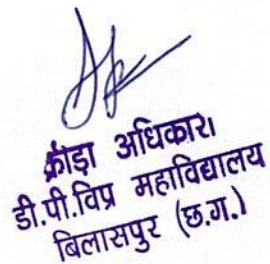 क्रीड़ा अधिकारी
डी.पी.विप्र महाविद्यालय
बिलासपुर (छ.ग.)